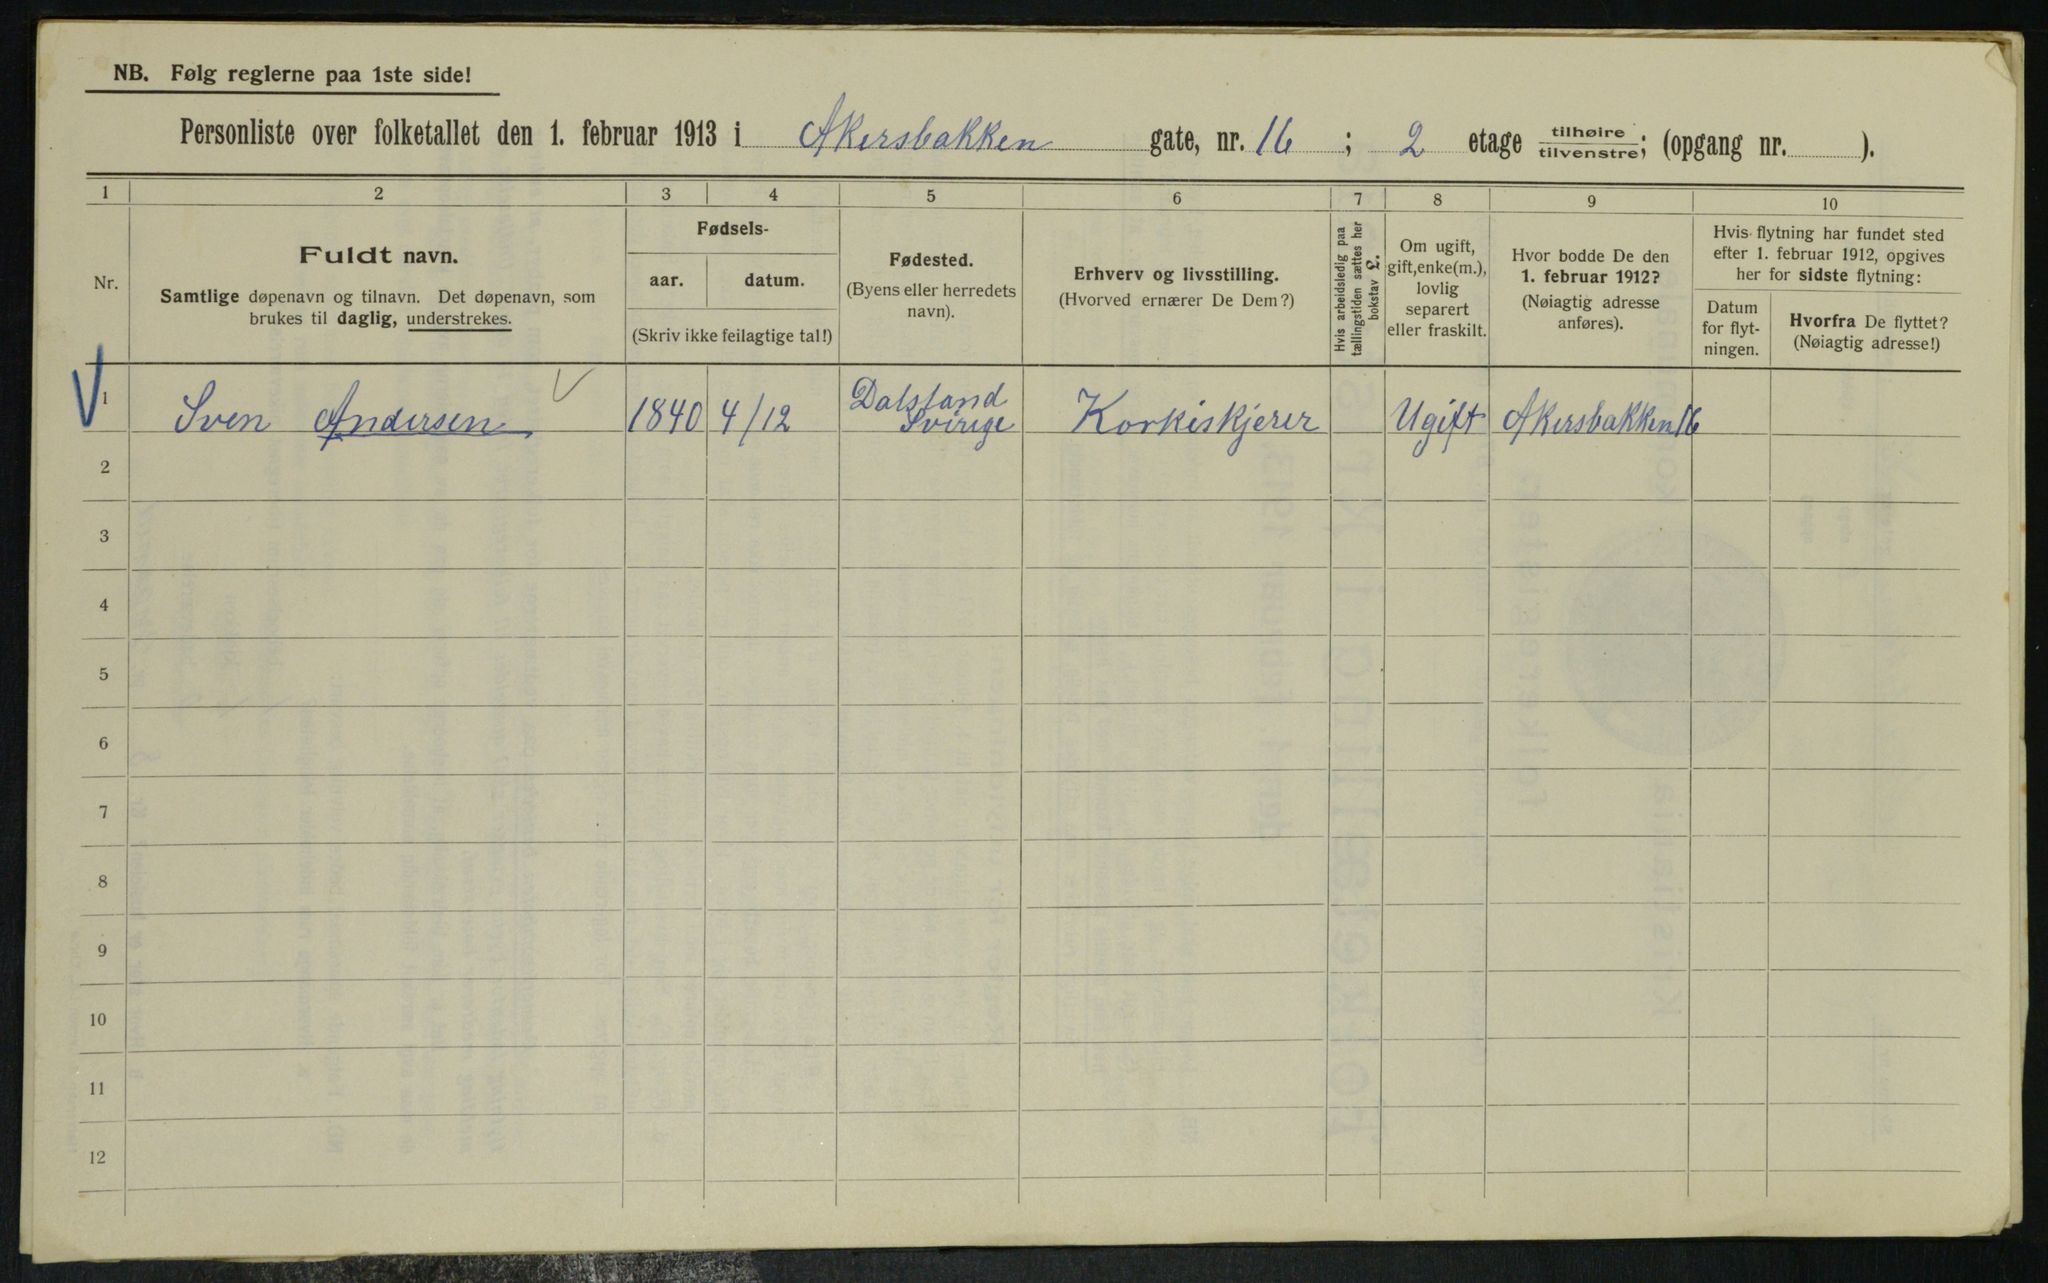 NB. Følg reglerne paa 1ste side!
Personliste over folketallet den 1. februar 1913 i Akersbakken gate, nr. 16 ; 2 etage tilhøire tilvenstre; (opgang nr. ).
1 2 3 4 5 6 7 8 9 10
Nr.
Fuldt navn.
Samtlige døpenavn og tilnavn. Det døpenavn, som
brukes til daglig, understrekes.
Fødsels-
aar. datum.
(Skriv ikke feilagtige tal!)
Fødested.
(Byens eller herredets
navn).
Erhverv og livsstilling.
(Hvorved ernærer De Dem?)
Hvis arbeidsledig paa
tællingstiden sættes her
bokstav £.
Om ugift,
gift, enke(m.),
lovlig
separert
eller fraskilt.
Hvor bodde De den
1. februar 1912?
(Nøiagtig adresse
anføres).
Hvis flytning har fundet sted
efter 1. februar 1912, opgives
her for sidste flytning:
Datum
for flyt-
ningen.
Hvorfra De flyttet?
(Nøiagtig adresse!)
1 Sven Andersen 1840 4/12 Dalsland
Sverige Korkiskjerer Ugift Akersbakken 16
2
3
4
5
6
7
8
9
10
11
12